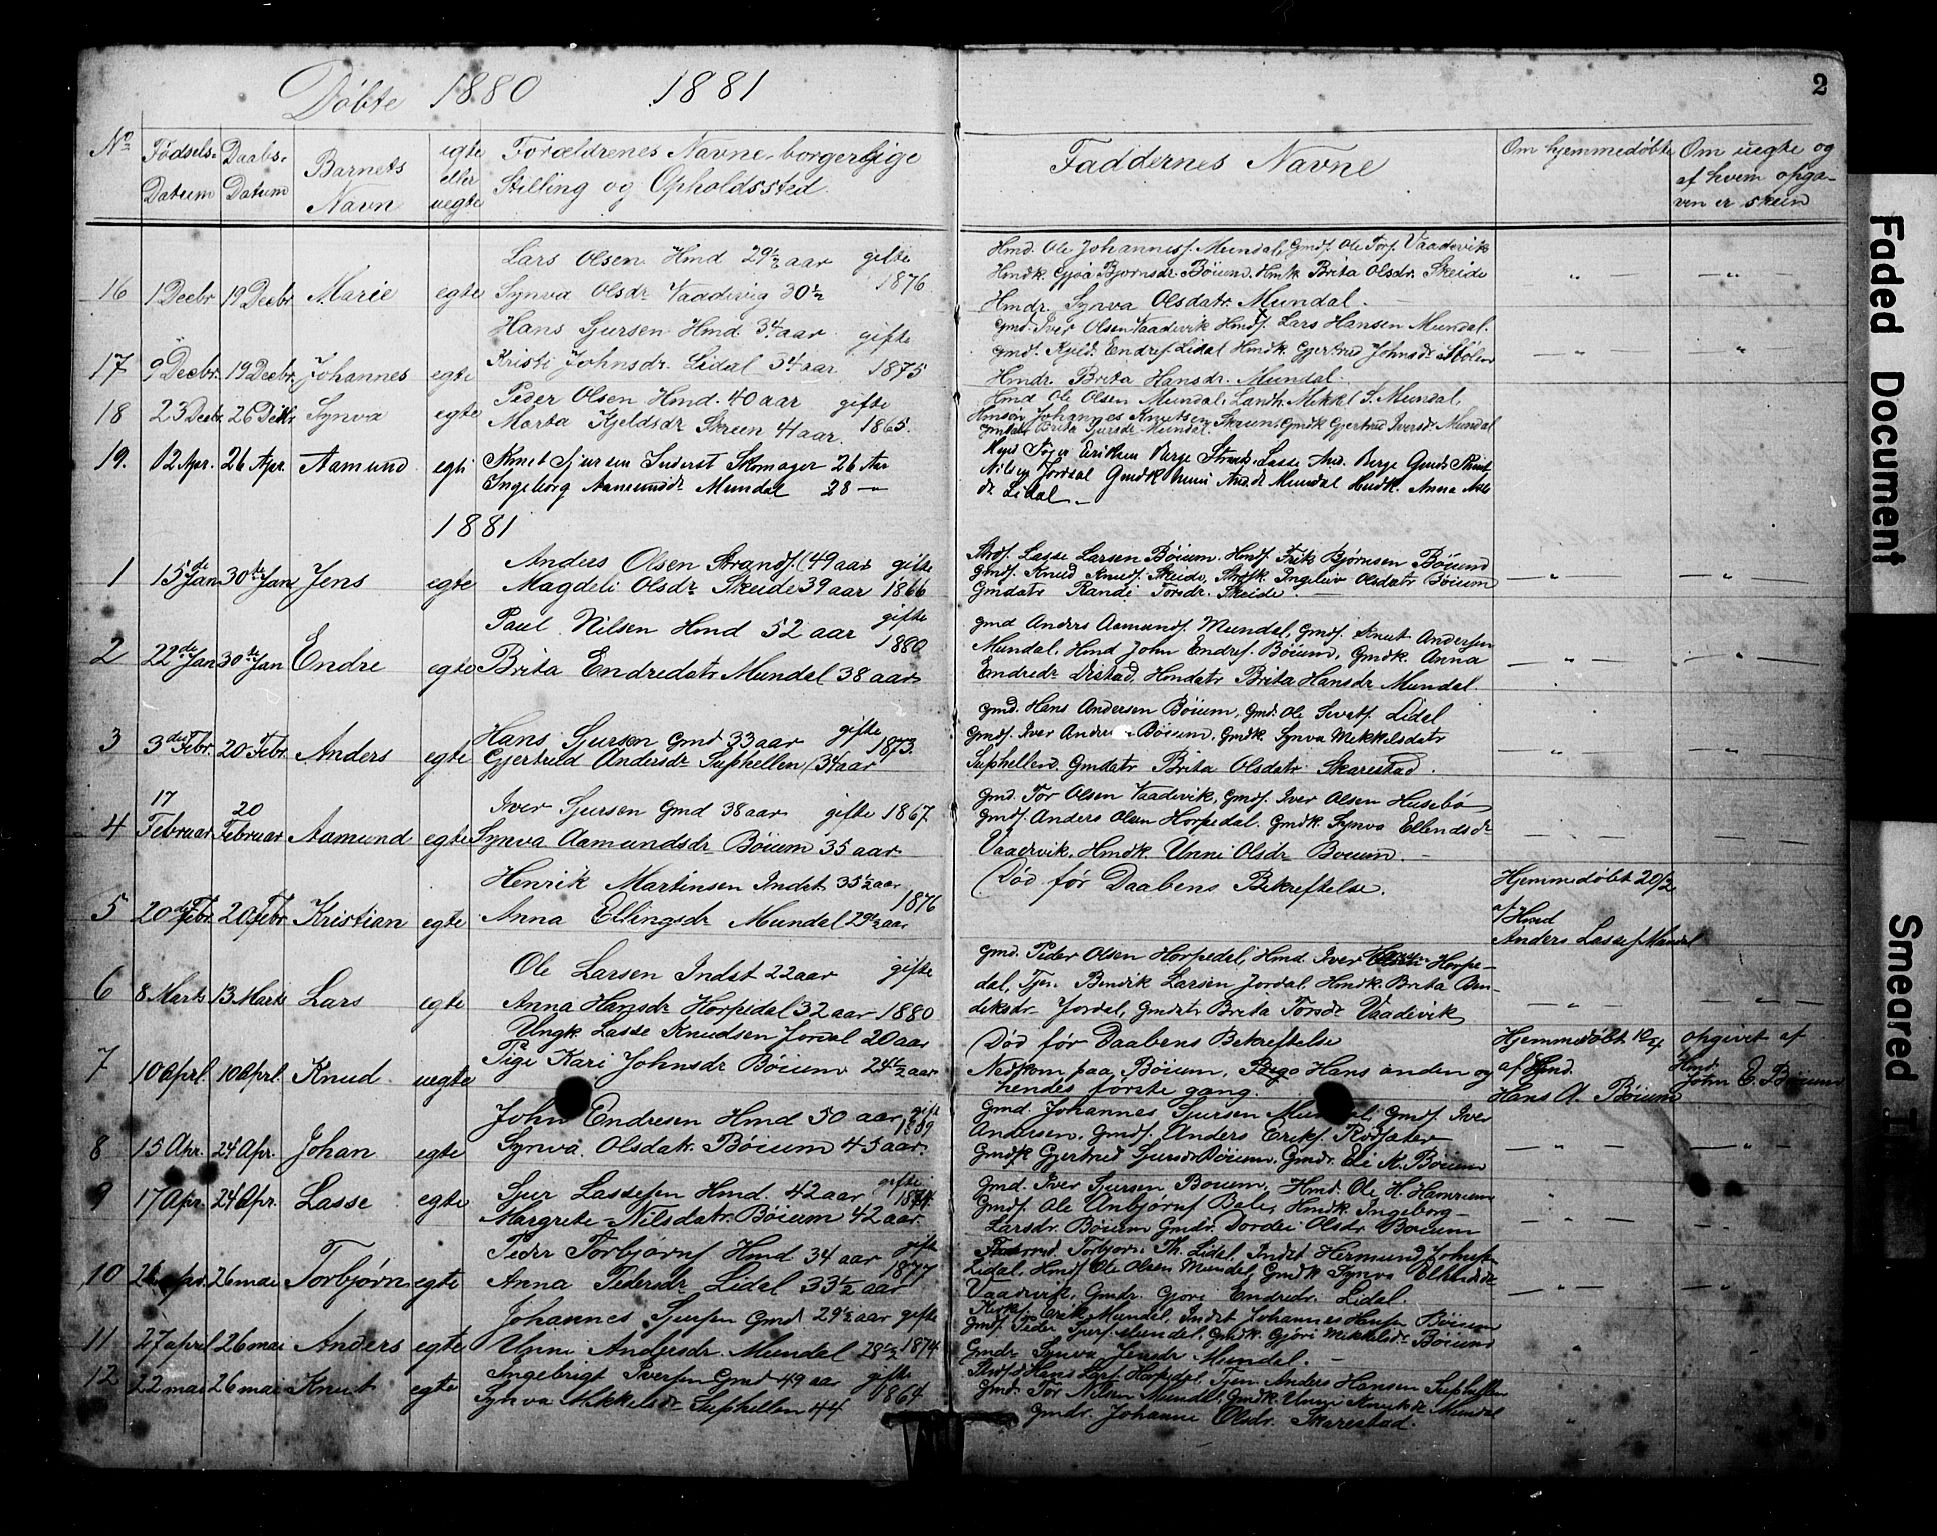 Døbte 1880 1881
2
No
Fødsels-Datum
Daabs-Datum
Barnets Navn
egte eller uegte
Forældrenes Navne borgerlige Stilling og Opholdssted.
Faddernes Navne
Om hjemmedøbte
Om uegte og af hvem opgaven er skeen
16 1 Decbr 19 Decbr Marie egte
Lars Olsen Hmd 29 1/2 aar gifte
Synva Olsdr Vaadevig 30 1/2 1876
Hmd. Ole Johannesf. Mundal, Gmdf. Ole Torf. Vaadevik
Hmdk. Gjøa Bjornsdr. Böium, Hmk Brita Olsdr. Skeide
Hmdr. Synva Olsdatr. Mundal.
17 9 Decbr. 19 Decbr. Johannes egte
Hans Sjursen Hmd 34 aar gifte
Kristi Johnsdr. Lidal 34 aar 1875
Gmd. Iver Olsen Vaadevik Hmdf. Lars Hansen Mundal.
Gmdf. Kjeld. Endref. Lidal Hmdk. Gjertrud Johnsdr. Stölen
Hmdr. Brita Hansdr. Mundal.
18 23 Decbr. 26 Decbr. Synva egte
Peder Olsen Hmd. 40 aar gifte
Marta Kjeldsdr Skreen 41 aar. 1865.
Hmd Ole Olsen Mundal, Landh. Mikkel S. Mundal,
Hmsøn Johannes Knutsen Skreen, Gmdk Gjertrud Iversdr. Mundal
Gmdatr Brita Sjursdr Mundal.
19. 12 Apr. 26 Apr. Aamund egte
Knut Sjursen Inderst Skomager 26 Aar
Ingeborg Aamundsdr Mundal 28 —
Eriksen Berge Lasse And. Berge
Jordal Gmdk Unni And.dr Mundal Hmdk. Anna
Lidal
1881
1 15de Jan 30te Jan Jens egte
Anders Olsen Strandf. (49 aar gifte
Magdeli Olsdr Skeide 39 aar 1866
Strdf. Lasse Larsen Böium. Hmdf. Erik Bjørnsen Böiund
Gmdf. Knud Knudf. Skeide, Strdfk. Ingeleiv Olsdatr Böium
Gmdatr Randi Torsdr. Skeide.
2 22de Jan 30te Jan Endre egte
Paul Nilsen Hmd 52 aar gifte
Brita Endredatr Mundal 38 aar 1880
Gmd Anders Aamundf. Mundal, Gmdf. Knut Andersen
Mundal. Hmd John Endref. Böium, Gmdk. Anna
Endredr Distad, Hmdatr Brita Hansdr Mundal.
3 3die Febr 20 Febr. Anders egte
Hans Sjursen Gmd 33 aar gifte
Gjertrud Andersdr Suphellen (34 aar 1873.
Gmd. Hans Andersen Böium, Gmd. Ole Sevatf. Lidal
Gmdf. Iver Andersen Böium, Gmdk. Synva Mekkelsdatr
Suphellen. Gmdatr Brita Olsdatr Skarestad.
4 17 Februar 20 Februar Aamund egte
Iver Sjursen Gmd 38 aar gifte 1867
Synva Aamundsdr Böium 35 aar
Gmd. Tor Olsen Vaadevik, Gmdf. Iver Olsen Husebö
Gmdf. Anders Olsen Horpedal. Gmdk. Synva Ellendsdr
Vaadevik. Hmdk. Unni Olsdr Boium.
5 20de Febr. 20 Febr. Kristian egte
Henrik Martinsen Indst 35 1/2 aar
Anna Ellingsdr Mundal 29 1/2 aar 1876
(Død før Daabens Bekreftelse.
Hjemmedøbt 20/2
af Hmd
Anders Lassef. Mundal
6 8 Marts 13 Marts Lars egte
Ole Larsen Indst 22 aar gifte
Anna Hansdr Horpedal 32 aar 1880
Gmd. Peder Olsen Horpedal, Hmd Iver Horpe-
dal, Tjen. Bendik Larsen Jordal, Hmdk. Brita Ben-
diksdr. Jordal, Gmdatr Brita Torsdr Vaadevik
7 10 Aprl. 10 Aprl. Knud uegte
Ungk Lasse Knudsen Jordal 20 aar
Pige Kari Johnsdr Böium 24 1/2 aar
(Død før Daabens Bekreftelse
Nedkom paa Böium, Hans anden og
hendes første gang.
Hjemmedøbt 10/4
af Hmd.
Hans A. Böium
opgivet af
Hmd.
John E. Böium
8 15 Apr. 24 Apr. Johan egte
John Endresen Hmd 50 aar gift
Synva Olsdatr. Böium 45 aar.
Gmd. Johannes Sjursen Mundal, Gmdf. Iver
Andersen, Gmdf. Anders Erikf.
Gmdk Gjertrud Sjursdr Böium, Gmdr. Eli K. Böium
9 17 Apr. 24 Apr. Lasse egte
Sjur Lassesen Hmd. 42 aar gifte
Margrete Nilsdatr. Böium 42 aar.
Gmd. Iver Sjursen Boium, Hmd. Ole H. Hamrum
Gmdf. Ole Anbjørnf. Hmdk Ingeborg
Larsdr. Böium Gmdr. Dordei Olsdr. Boium
10 26 mai Torbjørn egte
Peder Torbjørnf Hmd 34 aar gifte
Anna Pedersdr Lidal 33 1/2 aar 1877
Torbjørn Th. Lidal, Indst Hermund Johnsen
Lidal, Hmdf Ole Olsen Mundal, Gmdk Synva
Vaadevik. Gmdr. Gjore Endredr. Lidal
11 27 april 26 mai Anders egte
Johannes Sjursen Gmd 29 1/2 aar gifte
Unni Andersdr. Mundal 28 1/2 1874
Erik Mundal, Indst Johannes Hansen Böium
Gmdf. Peder Sjurf. Mundal, Gmdk. Gjøri Mekkelsdr Böium
Gmdr Synva Jensdr Mundal.
12 22 mai 26 mai Knut egte
Ingebrigt Iversen Gmd 49 aar gifte
Synva Mikkelsdr Suphellen 44 1864
Hans Larf. Horpedal, Tjen Anders Hansen Suphellen
Gmd. Tor Nilsen Mundal, Gmdk. Unni Knutsdr Mundal
Gmdr. Johanne Olsdr. Skarestad.
Faded Document
Smeared